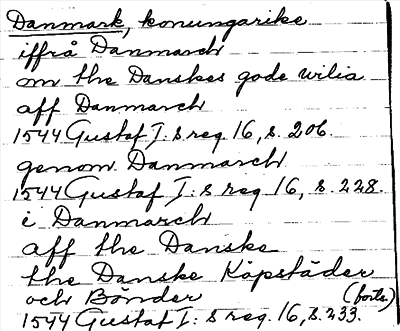 Danmark, konungarike
iffrå Danmarch
om the Danskes gode wilia
aff Danmarch
1544 Gustaf I:s reg 16, s. 206.
genom Danmarch
1544 Gustaf I:s reg 16, s. 228.
i Danmarch
aff the Danske
the Danske Köpstäder
och Bönder (forts.)
1544 Gustaf I:s reg. 16, s. 233.